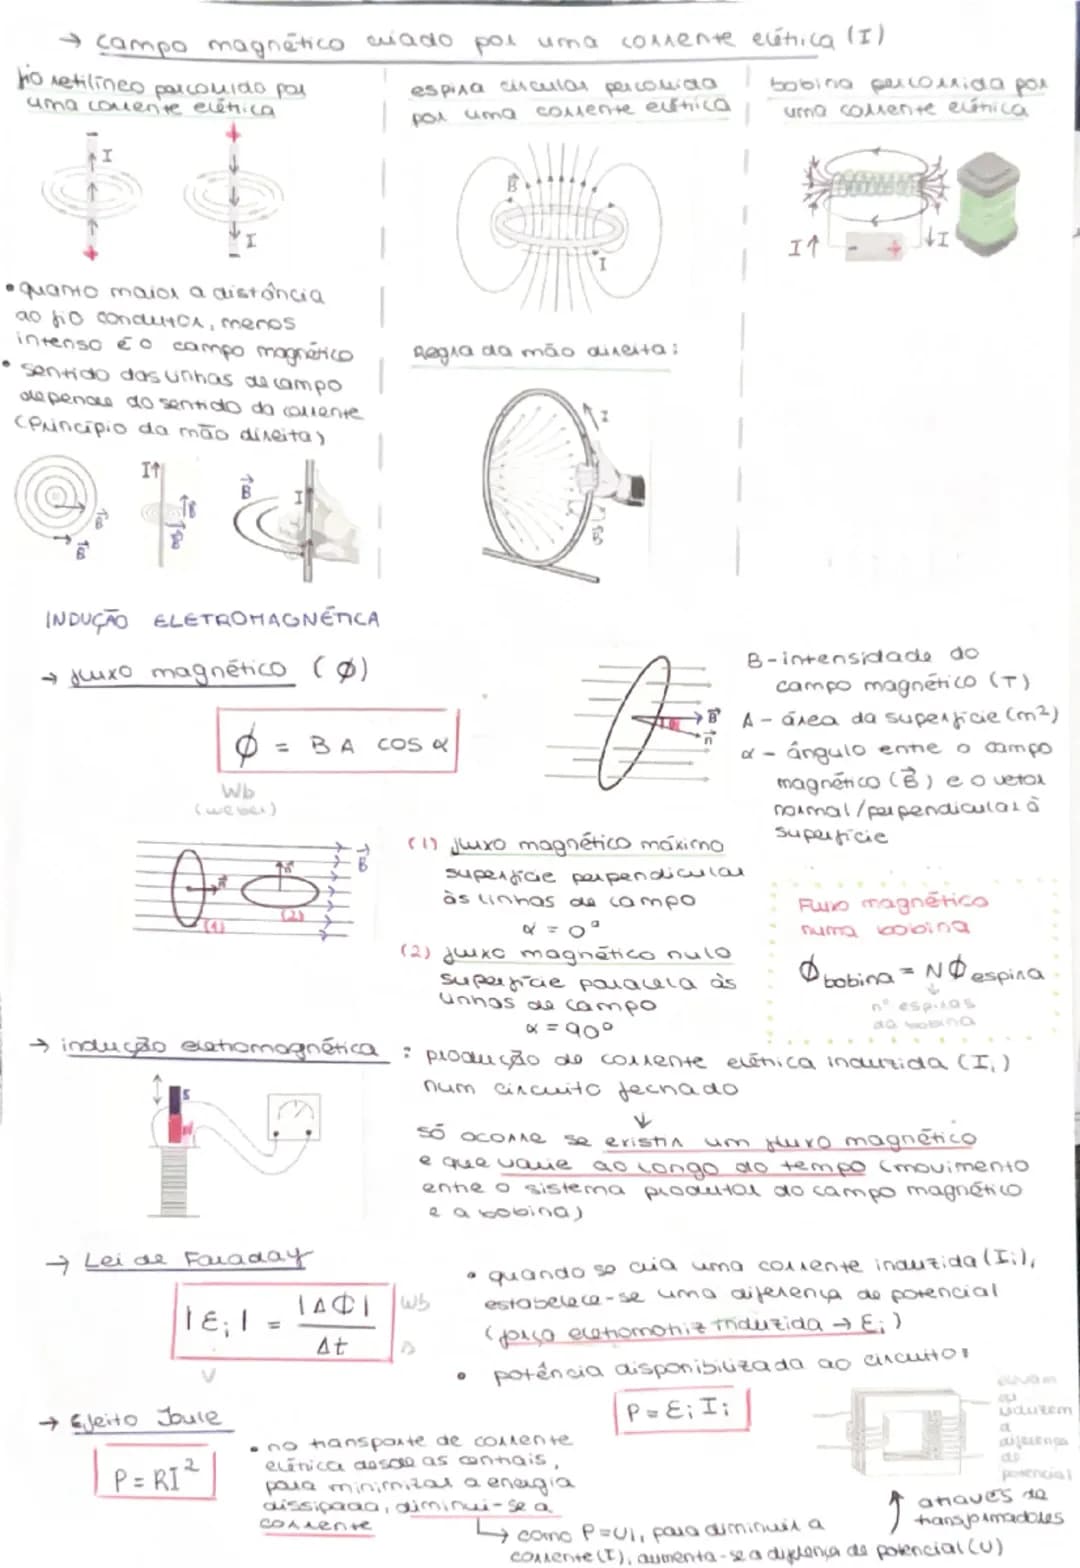 → campo magnético criado por uma corrente elétrica (I)
fio retilíneo percorrido por
uma corrente elétrica
I
I
• quanto maior a distância
ao fio condutor, menos
intenso é o campo magnético
• sentido das linhas de campo
depende do sentido da corrente
(Princípio da mão direita)
B
B
I↑
B
B
B
I
espira circular percorrida
por uma corrente elétrica
B
I
Regra da mão direita:
I
B
bobina percorrida por
uma corrente elétrica
I↑
- +
↓I
INDUÇÃO ELETROMAGNÉTICA
→ fluxo magnético (Ø)
Ø = B A cos α
Wb
(weber)
B
n
B - intensidade do
campo magnético (T)
A - área da superfície (m²)
α - ângulo entre o campo
magnético (B) e o vetor
normal/perpendicular à
superfície
n
n
B
(1)
(2)
(1) fluxo magnético máximo
superfície perpendicular
às linhas de campo
α = 0º
(2) fluxo magnético nulo
superfície paralela às
linhas de campo
α = 90º
Fluxo magnético
numa bobina
Ø bobina = N Ø espira
nº espiras
da bobina
→ indução eletromagnética : produção de corrente elétrica induzida (I,)
num circuito fechado
S
N
só ocorre se existir um fluxo magnético
e que varie ao longo do tempo (movimento
entre o sistema produtor do campo magnético
e a bobina)
→ Lei de Faraday
|εi| = |ΔΦ| / Δt
Wb
s
V
• quando se cria uma corrente induzida (Ii),
estabelece-se uma diferença de potencial
(força eletromotriz induzida → εi)
• potência disponibilizada ao circuito:
P = εi Ii
→ Efeito Joule
P = RI²
• no transporte de corrente
elétrica desde as centrais,
para minimizar a energia
dissipada, diminui-se a
corrente
↳ como P=UI, para diminuir a
corrente (I), aumenta-se a diferença de potencial (U)
elevam
ou
reduzem
a
diferença
de
potencial
↑ através de
transformadores